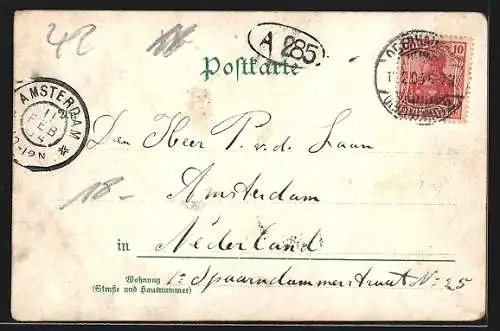 42
A 285
Postkarte
10
AMSTERDAM
11
FEB
04
Den Heer P. v.d. Laan
18-
Amsterdam
in Nederland
Wohnung
(Straße und Hausnummer)
1e Spaarndammerstraat No 25